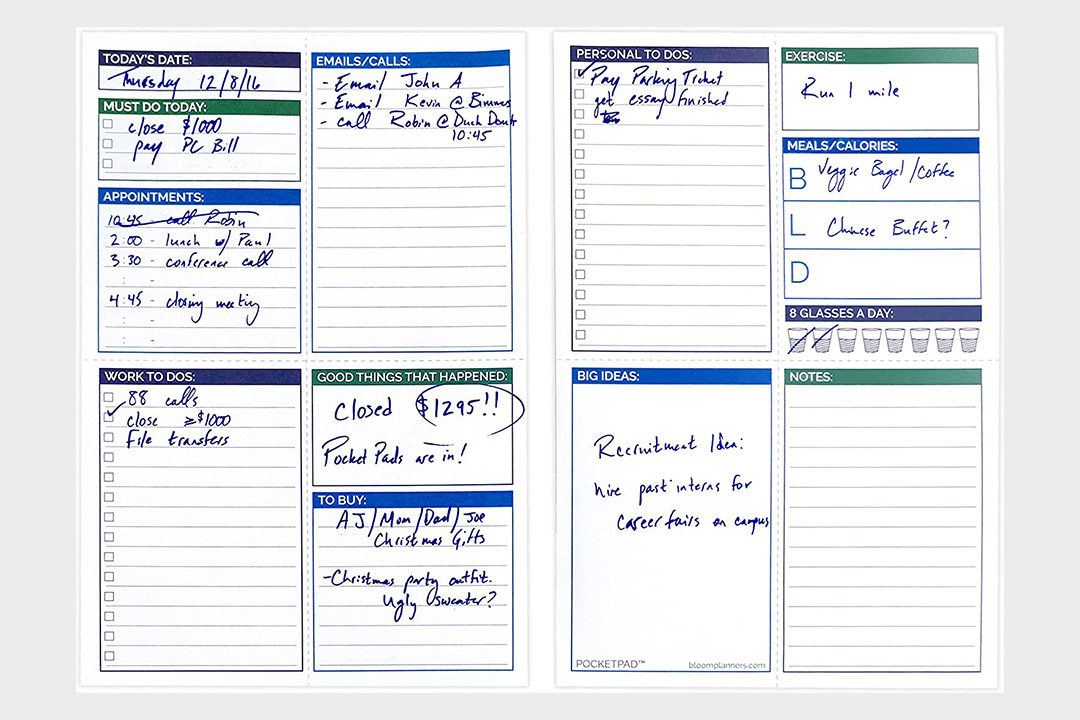 TODAY'S DATE:
Thursday 12/8/16
MUST DO TODAY:
close $1000
pay PC Bill
APPOINTMENTS:
10:45 - call Robin
2:00 - lunch w/ Paul
3:30 - conference call
: -
4:45 - closing meeting
: -
: -
EMAILS/CALLS:
- Email John A
- Email Kevin @ Bimms
- call Robin @ Duck Donut
10:45
WORK TO DOS:
88 calls
close ≥$1000
File transfers
GOOD THINGS THAT HAPPENED:
Closed $1295!!
Pocket Pads are in!
TO BUY:
AJ/Mom/Dad/Joe
Christmas Gifts
-Christmas party outfit.
Ugly sweater?
PERSONAL TO DOS:
Pay Parking Ticket
get essay finished
EXERCISE:
Run 1 mile
MEALS/CALORIES:
B Veggie Bagel/Coffee
L Chinese Buffet?
D
8 GLASSES A DAY:
BIG IDEAS:
Recruitment Idea:
hire past interns for
career fairs on campus
POCKETPAD™ bloomplanners.com
NOTES: